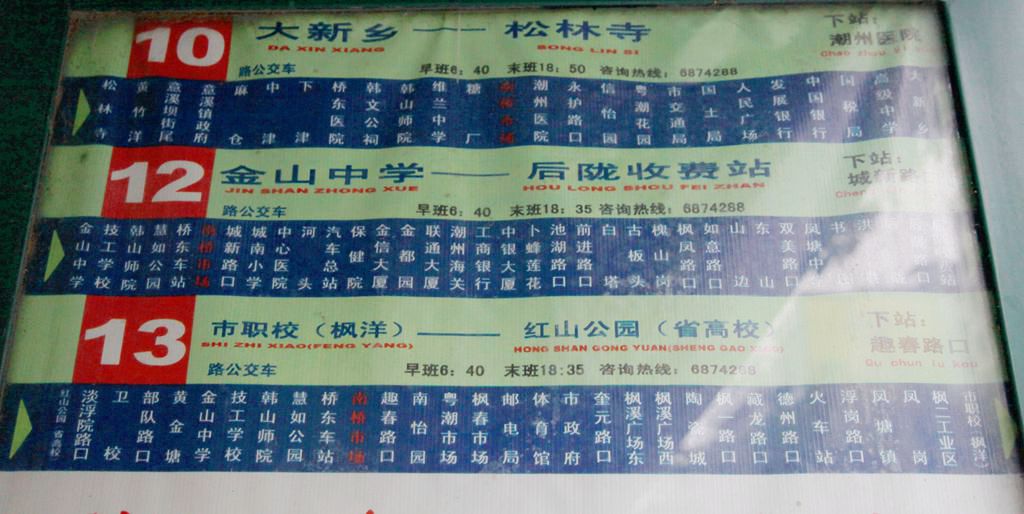 10 大新乡 —— 松林寺 下站：
DA XIN XIANG SONG LIN SI 潮州医院
路公交车 早班6：40 末班18：50 咨询热线：6874288
松林寺 黄竹洋 意溪坝街尾 意溪镇政府 麻仓 中津 下津 桥东医院 韩文公祠 韩山师院 维兰中学 糖厂 南桥市场 潮州医院 永护路口 信怡园 粤潮花园 市交通局 国土局 人民广场 发展银行 中国银行 国税局 高级中学 大新乡
12 金山中学 —— 后陇收费站 下站：
JIN SHAN ZHONG XUE HOU LONG SHOU FEI ZHAN 城新路
路公交车 早班6：40 末班18：35 咨询热线：6874288
金山中学 技工学校 韩山师院 慧如公园 桥东车站 南桥市场 城新路口 城南小学 中心医院 河头 汽车总站 保健院 金信大厦 金都园 联通大厦 潮州海关 工商银行 中银大厦 卜蜂莲花 池湖路口 前进路口 白塔 古板头 槐山岗 枫凤路口 如意路口 山边 东山 双美路口
13 市职校（枫洋） —— 红山公园（省高校） 下站：
SHI ZHI XIAO(FENG YANG) HONG SHAN GONG YUAN(SHENG GAO XIAO) 趣春路口
Qu chun lu kou
路公交车 早班6：40 末班18:35 咨询热线：6874288
红山公园（省高校） 淡浮院路口 卫校 部队路口 黄金塘 金山中学 技工学校 韩山师院 慧如公园 桥东车站 南桥市场 趣春路口 南怡园 粤潮市场 枫春市场 邮电局 体育馆 市政府 奎元路口 枫溪广场东 枫溪广场西 陶瓷城 枫一路口 藏龙路口 德州路口 火车站 浮岗路口 凤塘镇 凤岗 枫二工业区 市职校（枫洋）